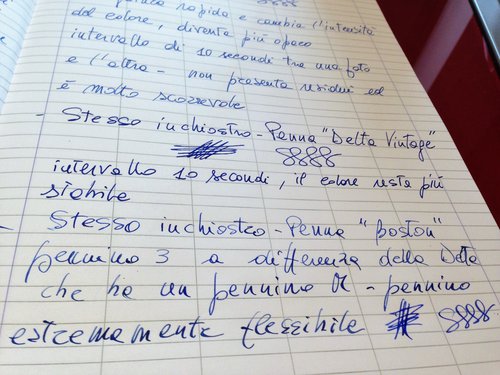 rapida e cambia l'intensità
del colore, diventa più opaco
intervallo di 10 secondi tra una foto
e l'altra - non presenta residui ed
è molto scorrevole
- Stesso inchiostro - Penna "Delta Vintage"
8888
intervallo 10 secondi, il colore resta più
stabile
- Stesso inchiostro - Penna "boston"
pennino 3 a differenza della Delta
che ha un pennino - pennino
estremamente flessibile # 8888